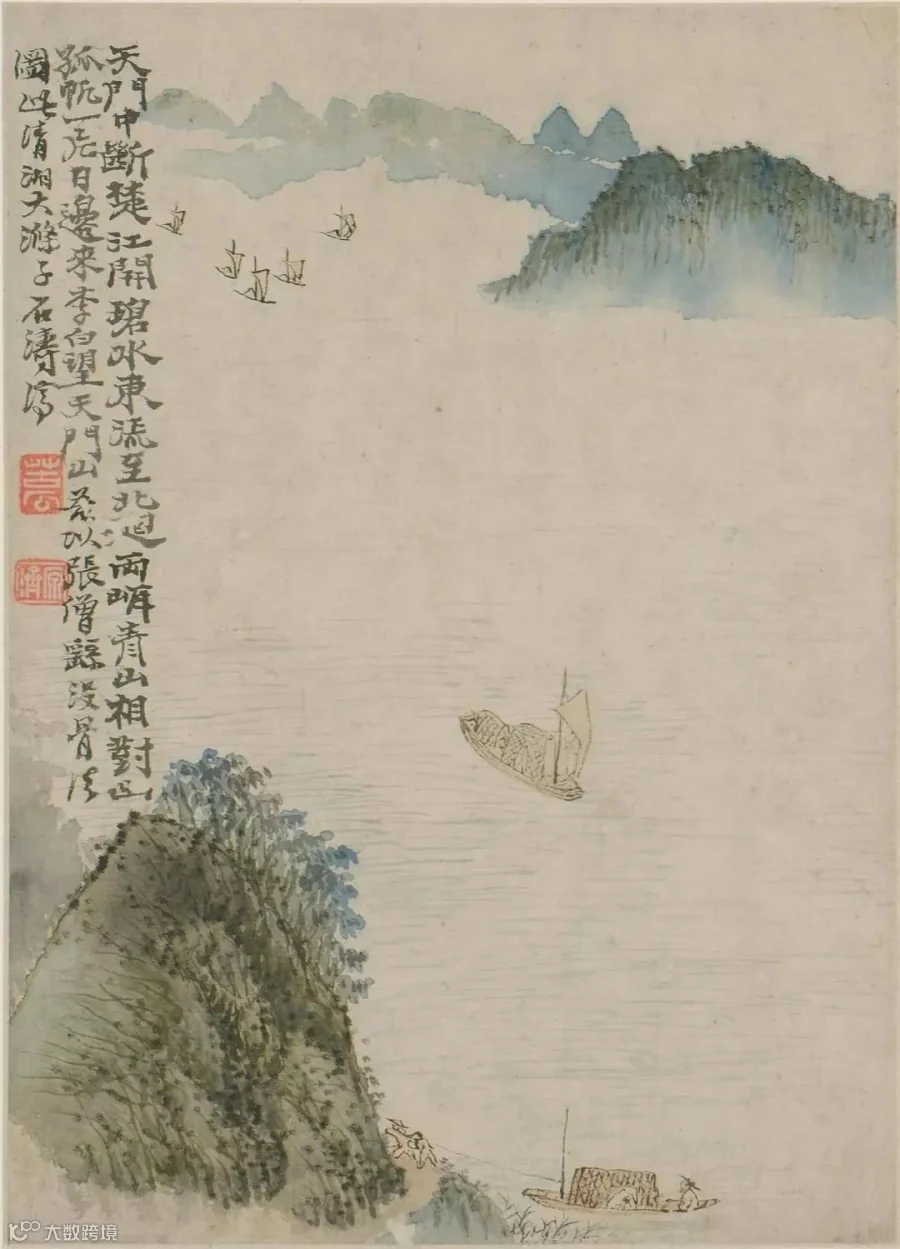 天門中斷楚江開碧水東流至北迴兩岸青山相對出
孤帆一片日邊來李白望天門山茲以張僧繇沒骨法
圖此清湘大滌子石濤濟
苦瓜
原濟
大数跨境